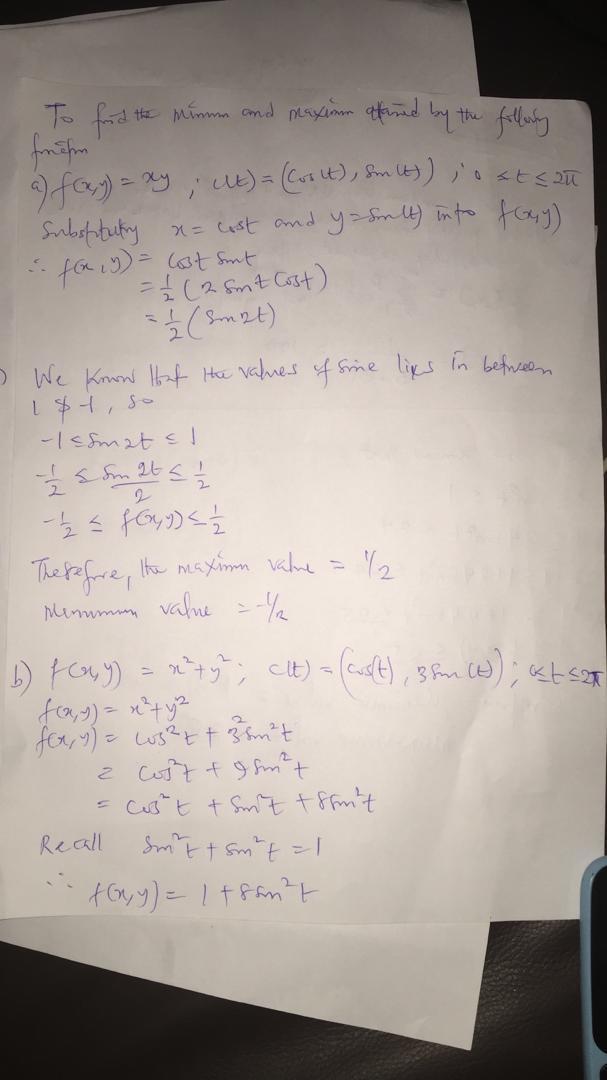 To find the minmn and maximn attained by the following
function
a) f(x,y) = xy ; c(t) = (Cos(t), Sin(t)) ; 0 ≤ t ≤ 2π
Substituting x = cost and y = Sin(t) into f(x,y)
∴ f(x,y) = Cost Sint
= 1/2 (2 Sint Cost)
= 1/2 (Sin2t)
We know that the values of Sine lies in between
1 & -1, so
-1 ≤ Sin2t ≤ 1
-1/2 ≤ Sin 2t/2 ≤ 1/2
-1/2 ≤ f(x,y) ≤ 1/2
Therefore, the maximn value = 1/2
Minumum value = -1/2
b) f(x,y) = x²+y² ; c(t) = (cos(t), 3Sin(t)) ; 0≤t≤2π
f(x,y) = x²+y²
f(x,y) = cos²t + 3²Sin²t
= cos²t + 9Sin²t
= cos²t + Sin²t + 8Sin²t
Recall Sin²t + Sin²t = 1
∴ f(x,y) = 1 + 8Sin²t